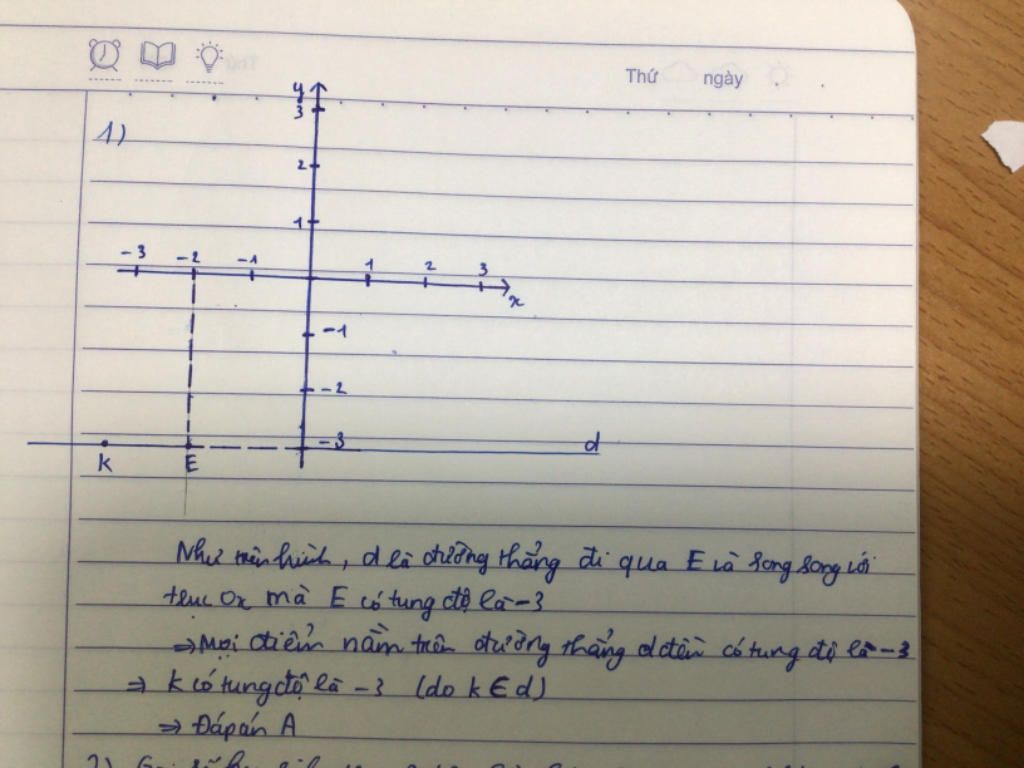 Thứ ngày
1)
y
3
2
1
-3 -2 -1 1 2 3
x
-1
-2
-3
K E d
Như trên hình, d là đường thẳng đi qua E và song song với
trục Ox mà E có tung độ là -3
⇒ Mọi điểm nằm trên đường thẳng d đều có tung độ là -3
⇒ K có tung độ là -3 (do K ∈ d)
⇒ Đáp án A
2)